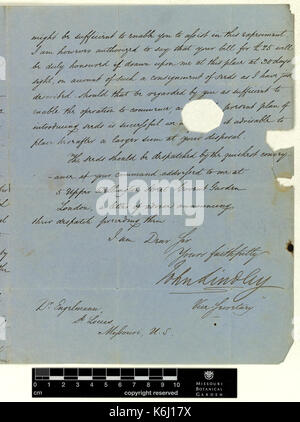 might be sufficient to enable you to assist in this experiment
I am however authorized to say that your bill for £25 will
be duly honoured if drawn upon me at this place at 30 days
sight, on account of such a consignment of seeds as I have just
described should that be regarded by you as sufficient to
enable the operation to commence and present plan of
introducing seeds is successful we it advisable to
place hereafter a larger sum at your disposal.
The seeds should be despatched by the quickest convey
-ance at your command addressed to me at
5 Upper Garden
London, announcing
their despatch preceding them
I am Dear Sir
Yours faithfully
John Lindley
Vice Secretary
Dr. Engelmann
St Louis
Missouri, U.S.
alamy
0 1 2 3 4 5 6 7 8 9 10
MISSOURI
BOTANICAL
GARDEN
alamy stock photo
K6J17X